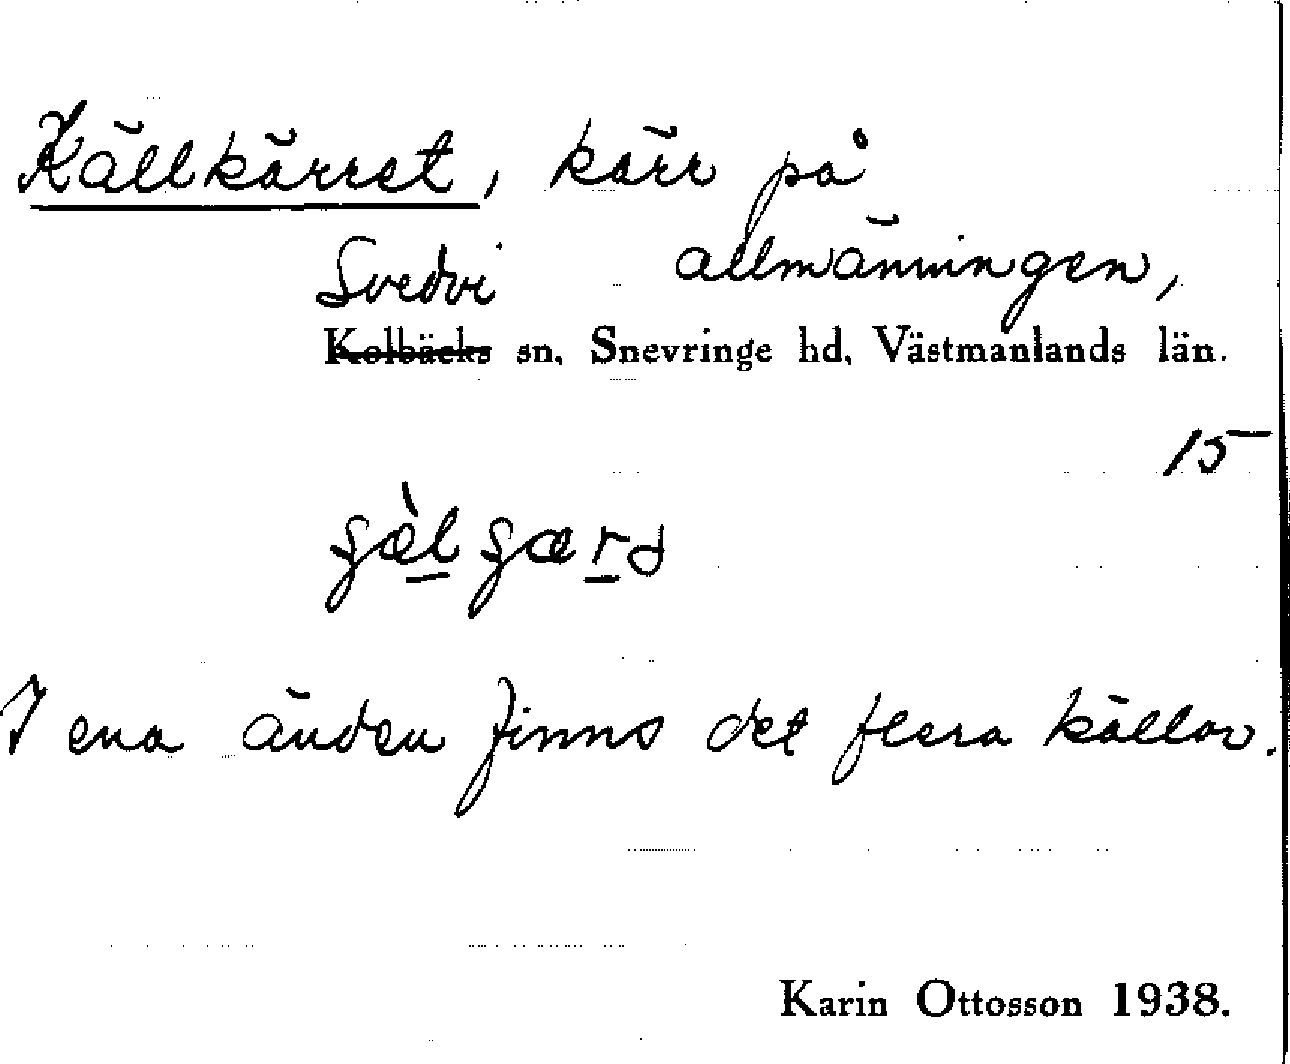 Källkärret, kärr på
allmänningen,
Svedvi
Kolbäcks sn, Snevringe hd, Västmanlands län.
15
I ena änden finns det flera källor.
Karin Ottosson 1938.